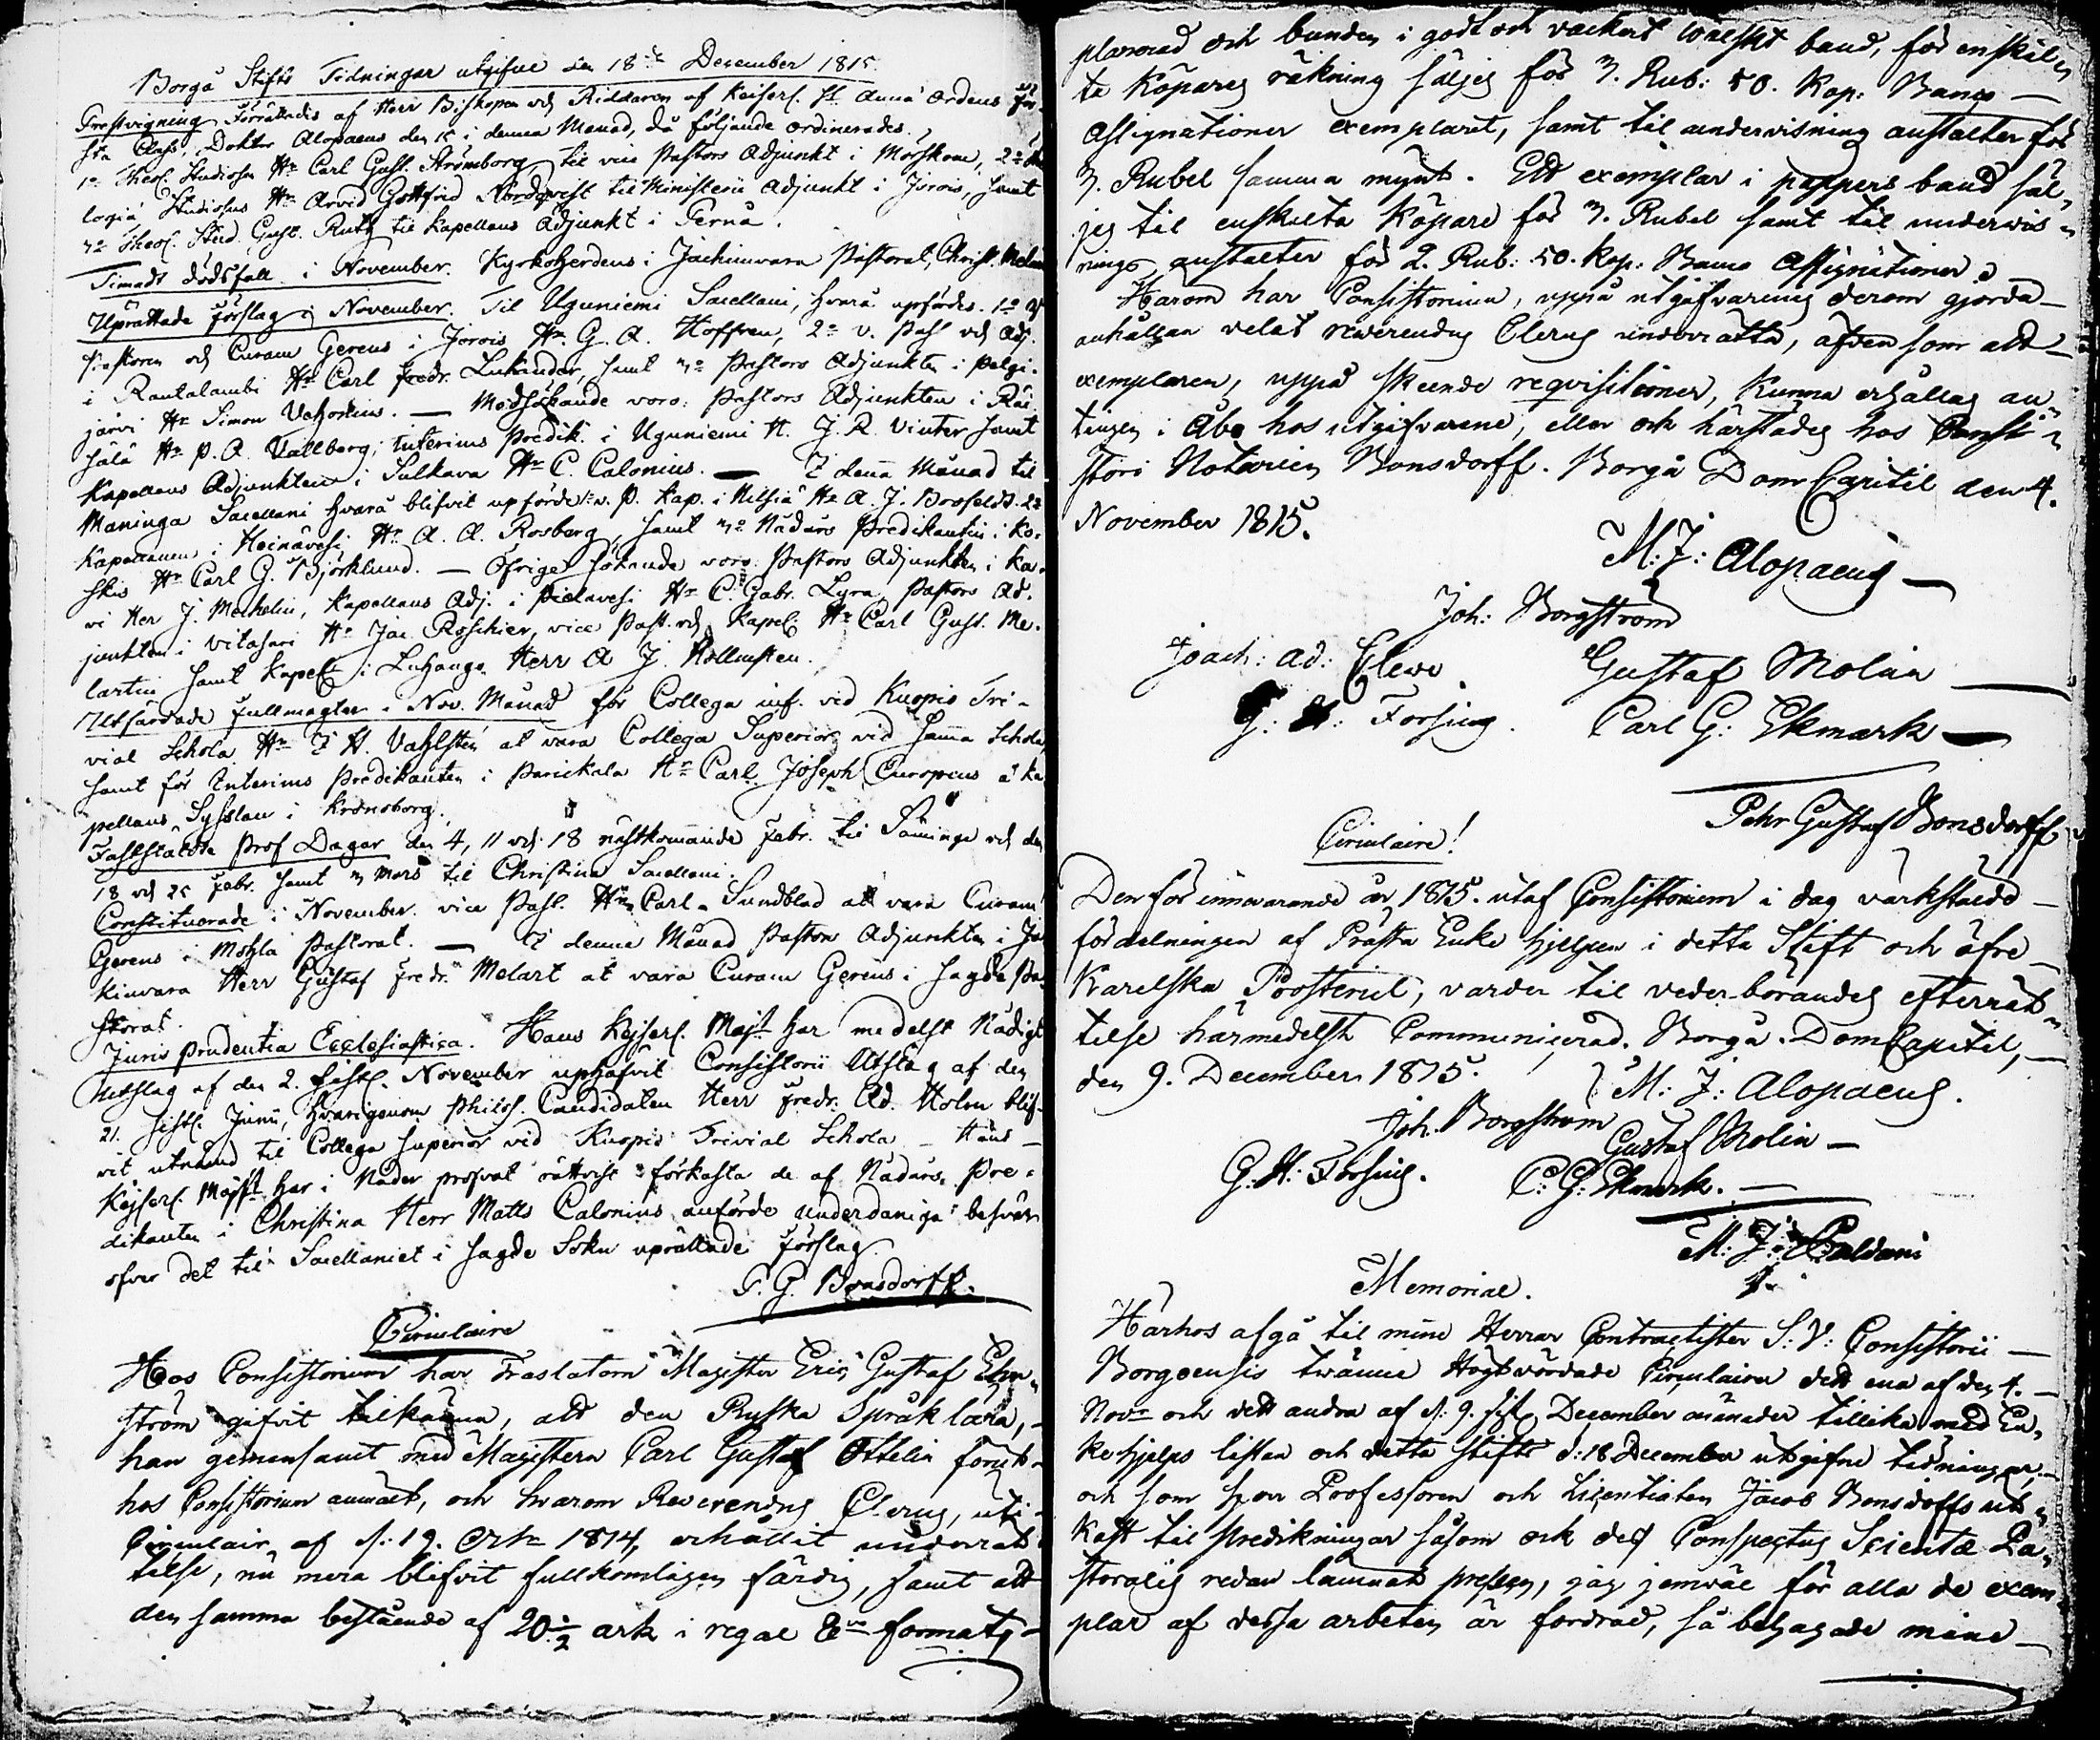 Borgå Stifts Tidningar utgifne den 18de December 1815.
Prestvigning Förrättades af Herr Biskopen och Riddaren af Kaiserl. St. Annæ Ordens för-
sta Class, Doktor Alopaeus den 15 i denna Månad, då följande ordinerades.
1o Theol. Studiosen Hr Carl Gust. Strömborg til vice Pastors Adjunkt i Mörskom, 2o
logiæ Studiosus Hr Arvid Gottfrid Nordqvist til Ministerii Adjunkt i Jorois, samt
3o Theol. Stud. Gust. Ruth til Kapellans Adjunkt i Pernå.
Timadt dödsfall i November. Kyrkoherden i Jachimvara Pastorat, Christ. Melart
Uprättade förslag i November. Til Uguniemi Sacellani, hvarå upfördes. 1o V
Pastoren och Curam Gerens i Jorois Hr. G. A. Hoffren, 2o v. Past och Adj.
i Rautalambi Hr Carl Fredr. Lukander, samt 3o Pastors Adjunkten i Pelgi-
järvi Hr Simon Vahorius. — Medsökande voro: Pastors Adjunkten i Räi
sälä Hr P. A. Vallberg; Interims Predik. i Uguniemi H. J. R. Vinter samt
Kapellans Adjunkten i Sulkava Hr C. Calonius. — I denna Månad til
Maninga Sacellani hvarå blifvit upförde: v. P. Kap. i Nilsiä Hr A. J. Brofeldt. 2o
Kapellanen i Heinävesi Hr A. A. Rosberg, samt 3o Nådårs Predikanten i Ko-
skis Hr Carl G. Björklund. — Öfrige sökande voro: Pastors Adjunkten i Ka-
vi Herr J. Mechelin, Kapellans Adj. i Pielavesi Hr C. Gabr. Lyra, Pastors Ad-
junkten i Vitasari Hr Jac. Roschier, vice Past. och Kapel. Hr Carl Gust. Me-
lartin samt Kapel. i Luhanga Herr A J. Hollmsten.
Utfärdade fullmagter i Nov. Månad för Collega inf. vid Kuopio Tri-
vial Schola Hr J H. Vahlsten at vara Collega Superior vid samma Schola,
samt för Interims Predikanten i Parickala Hr Carl Joseph Europæus å Ka-
pellans Sysslan i Kronoborg.
Fastställde Prof Dagar den 4, 11 och 18 nästkommande Febr. til Säminge och den
18 och 25 Febr. samt 3 Mars til Christina Sacellani.
Constituerade i November. vice Past. Hr Carl Sundblad att vara Curam
Gerens i Mohla Pastorat. — I denna Månad Pastors Adjunkten i Ja
kimvara Herr Gustaf Fredr. Melart at vara Curam Gerens i sagde Pa-
storat.
Juris prudentia Ecclesiastica. Hans Kejserl. Majst har medelst Nådigt
Utslag af den 2. sistl. November uphäfvit Consistorii Utslag af den
21. sistl. Junii, hvarigenom Philos. Candidaten Herr Fredr. Ad. Holm blif-
vit utnämd til Collega superior vid Kuopio Trivial Schola — Hans —
Kejserl. Majst har i Nåder pröfvat rättvist förkasta de af Nådårs Pre-
dikanten i Christina Herr Matts Calonius anförde underdåniga besvär
öfver det til Sacellaniet i sagde Sokn uprättade förslag.
P. G. Bonsdorff.
Circulaire
Hos Consistorium har Traslatorn Magister Eric Gustaf Ehr-
ström gifvit tilkänna, att den Ryska Språklära,
han gemensamt med Magistern Carl Gustaf Ottelin förut
hos Consistorium anmält, och hvarom Reverendus Clerus, uti
Circulair af d: 19. Octr 1814, erhållit underrät-
telse, nu mera blifvit fullkomligen färdig, samt att
den samma bestående af 20 1/2 ark i regal 8vo format,
planerad och bunden i godt och vackert wälskt band, för enskil-
te Köpares räkning säljes för 3. Rub: 50. Kop: Banco —
Assignationer exemplaret, samt til undervisning anstalter för
3. Rubel samma mynt. Ett exemplar i pappers band säl-
jes til enskilta Köpare för 3. Rubel samt til underwis-
nings anstalter för 2. Rub: 50. Kop: Banco Assignationer.
Härom har Consistorium, uppå utgifvarenes derom gjorda
anhållan velat reverendus Clerus underrätta, äfven som att
exemplaren, uppå skeende requisitioner, kunna erhållas an
tingen i Åbo hos utgifvarene, eller och härstädes hos Consi-
storii Notarien Bonsdorff. Borgå Dom Capitel den 4.
November 1815.
M: J: Alopaeus —
Joh: Borgström
Joach: Ad: Cleve Gustaf Molin
G: H: Forsius. Carl G: Ekmark —
Pehr Gustaf Bonsdorff
Circulaire!
Den för innevarande år 1815. utaf Consistorium i dag värkstäldt
fördelningen af Prästa Enke hjelpen i detta Stift och öfre
Karelska Prosteriet, varder til vederbörandes efterrät-
telse härmedelst Communicerad. Borgå DomCapitel,
den 9. December 1815. M: J: Alopaeus.
Joh. Borgström Gustaf Molin —
G. H: Forsius. C: G: Ekmark. —
M: J: Paldani
Memorial.
Härhos afgå til mine Herrar Contractister S: V: Consistorii —
Borgoensis twänne Högtvördade Circulairer dett ena af den 4. —
Novr och dett andra af d: 9. sistl. December månader tillika med En-
ke hjelps listan och detta Stifts d: 18 December utgifne tidningar —
och som herr Professoren och Licentiaten Jacob Bonsdorffs ut-
kast til Predikningar såsom ock des Conspectus Scientæ Pa-
storalis redan lämnat pressen, jag jemväl för alla de exem-
plar af dessa arbeten är fordrad, så behagade mine —